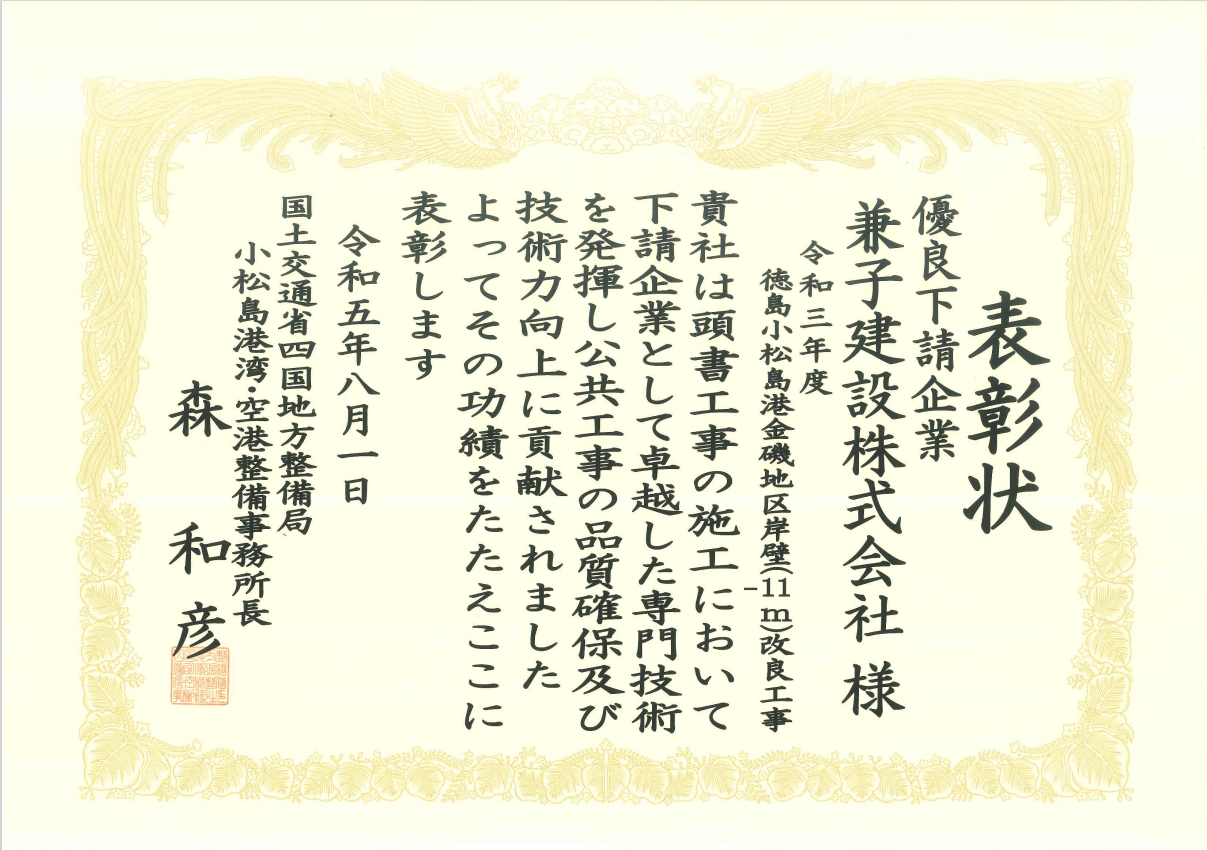 表彰状
優良下請企業
兼子建設株式会社 様
令和三年度
徳島小松島港金磯地区岸壁(-11m)改良工事
貴社は頭書工事の施工において
下請企業として卓越した専門技術
を発揮し公共工事の品質確保及び
技術力向上に貢献されました
よってその功績をたたえここに
表彰します
令和五年八月一日
国土交通省四国地方整備局
小松島港湾・空港整備事務所長
森 和彦